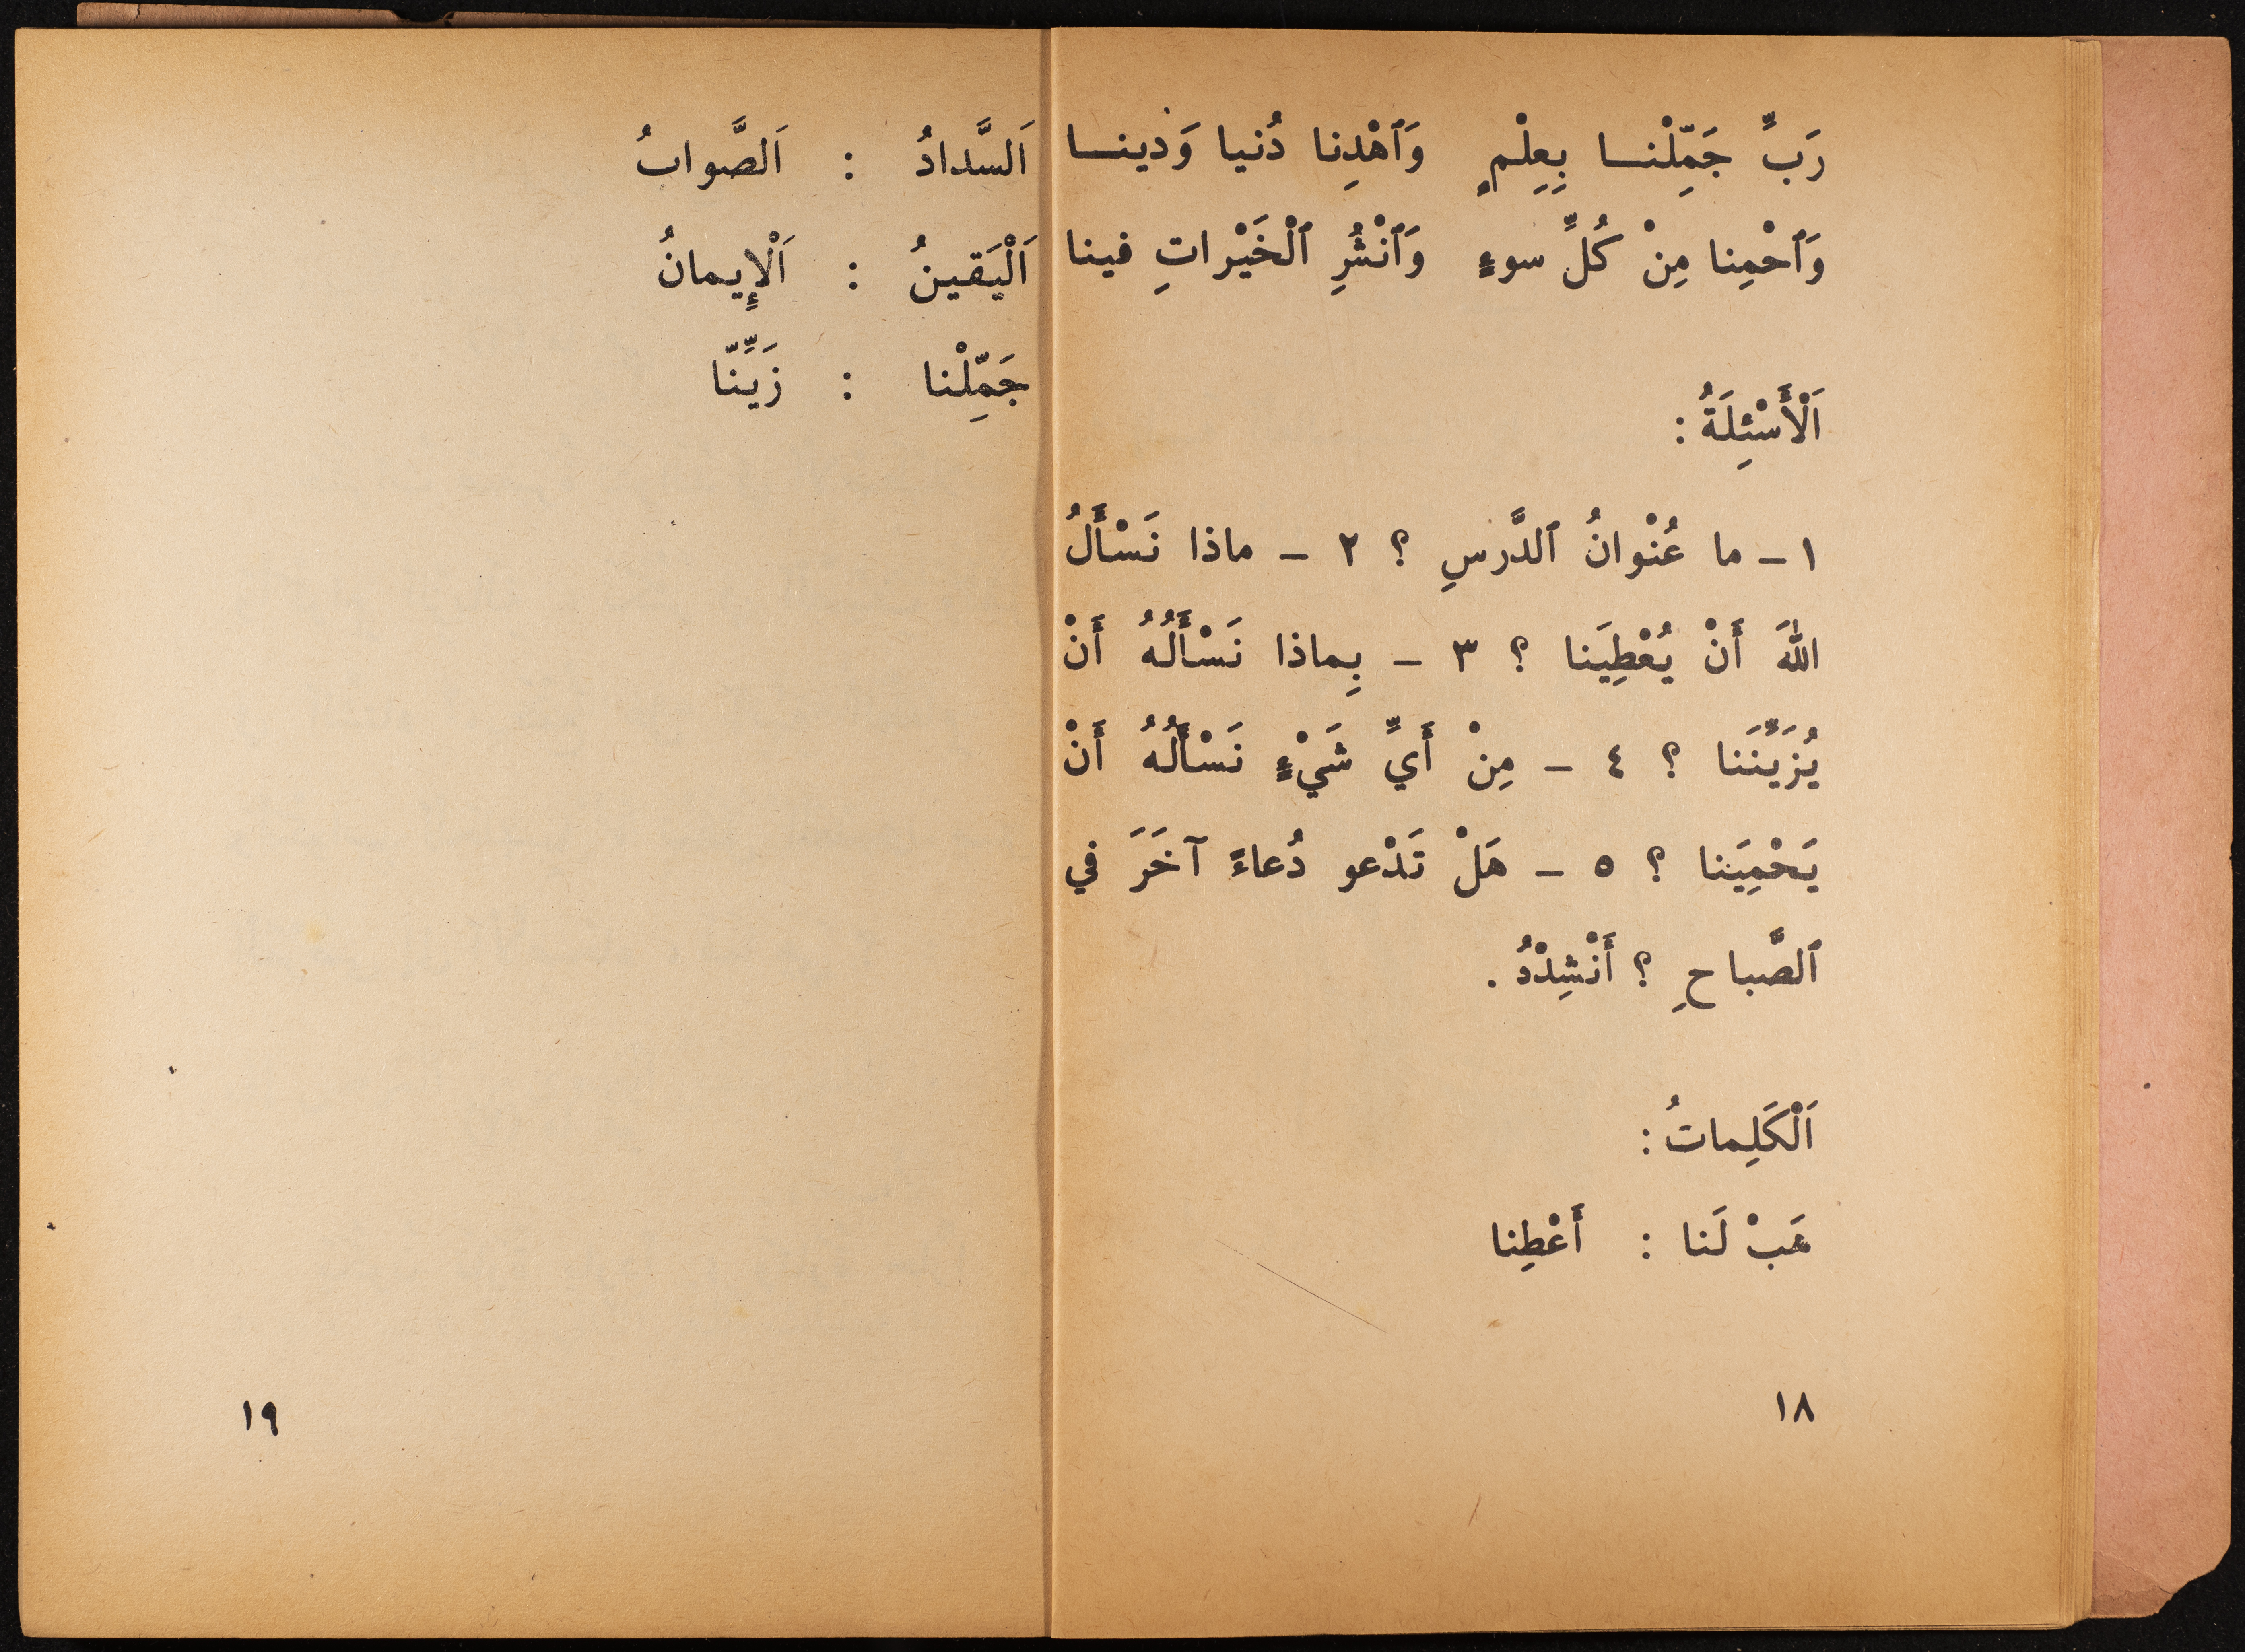 رَبِّ جَمِّلْنـــا بِعِلْمٍ وَٱهْدِنا دُنيا وَدينـــا
وَٱحْمِنا مِنْ كُلِّ سوءٍ وَٱنْشُرِ ٱلْخَيْراتِ فينا
اَلْأَسْئِلَةُ :
١ – ما عُنْوانُ ٱلدَّرسِ ؟ ٢ – ماذا نَسْأَلُ
اللهَ أَنْ يُعْطِيَنا ؟ ٣ – بِماذا نَسْأَلُهُ أَنْ
يُزَيِّنَنا ؟ ٤ – مِنْ أَيِّ شَيْءٍ نَسْأَلُهُ أَنْ
يَحْمِيَنا ؟ ٥ – هَلْ تَدْعو دُعاءً آخَرَ في
ٱلصَّباحِ ؟ أَنْشِدْدُ .
اَلْكَلِماتُ :
هَبْ لَنا : أَعْطِنا
١٨
اَلسَّدادُ : اَلصَّوابُ
اَلْيَقينُ : اَلْإِيمانُ
جَمِّلْنا : زَيِّنّا
١٩